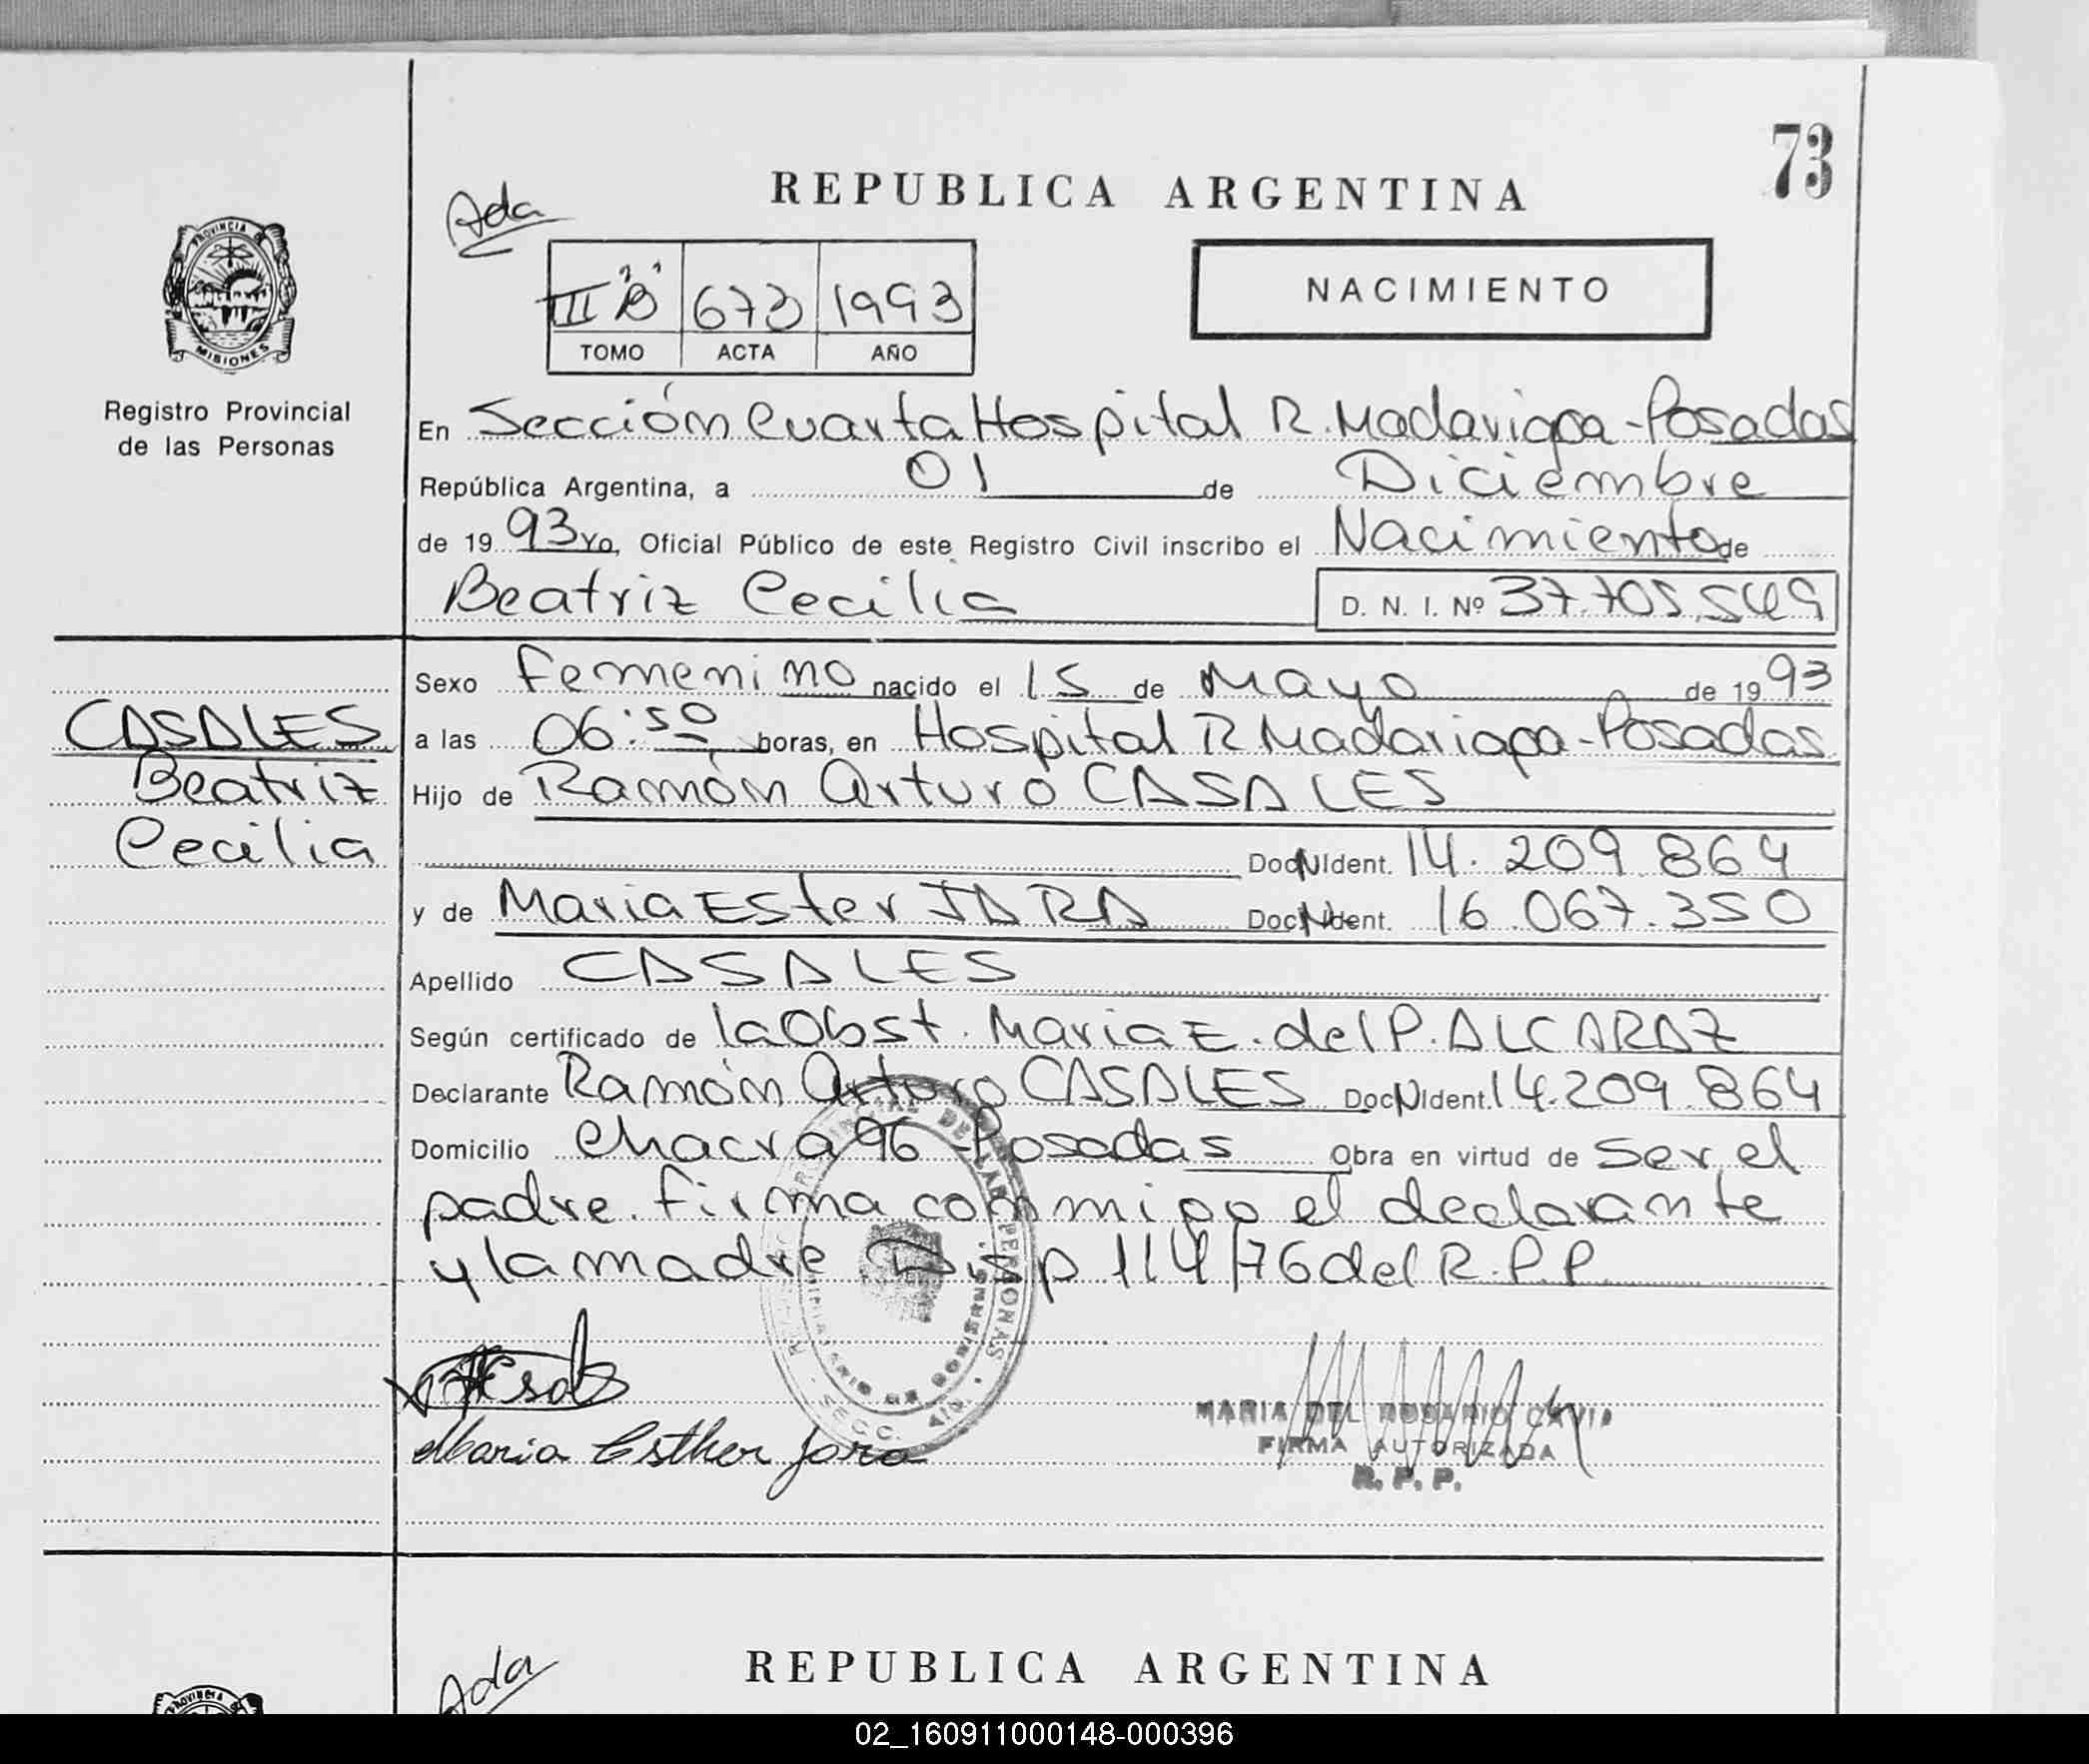 73
REPUBLICA ARGENTINA
Ada
PROVINCIA DE
MISIONES
Registro Provincial
de las Personas
III "B" 673 1993
TOMO ACTA AÑO
NACIMIENTO
En Sección Cuarta Hospital R. Madariaga - Posadas
República Argentina, a 01 de Diciembre
de 1993 Yo, Oficial Público de este Registro Civil inscribo el Nacimiento de
Beatriz Cecilia D. N. I. Nº 37.705.549
Sexo Femenino nacido el 15 de Mayo de 1993
CASALES
a las 06:50 horas, en Hospital R Madariaga - Posadas
Beatriz
Hijo de Ramón Arturo CASALES
Cecilia
Doc N Ident. 14.209.864
y de Maria Ester JARA Doc N Ident. 16.067.350
Apellido CASALES
Según certificado de la Obst. Maria E. del P. ALCARAZ
Declarante Ramón Arturo CASALES Doc N Ident. 14.209.864
Domicilio Chacra 96 - Posadas Obra en virtud de Ser el
padre. Firma conmigo el declarante
y la madre Disp 114/76 del R.P.P.
Maria Esther Jara
MARIA DEL ROSARIO
FIRMA AUTORIZADA
R. P. P.
Ada
REPUBLICA ARGENTINA
02_160911000148-000396